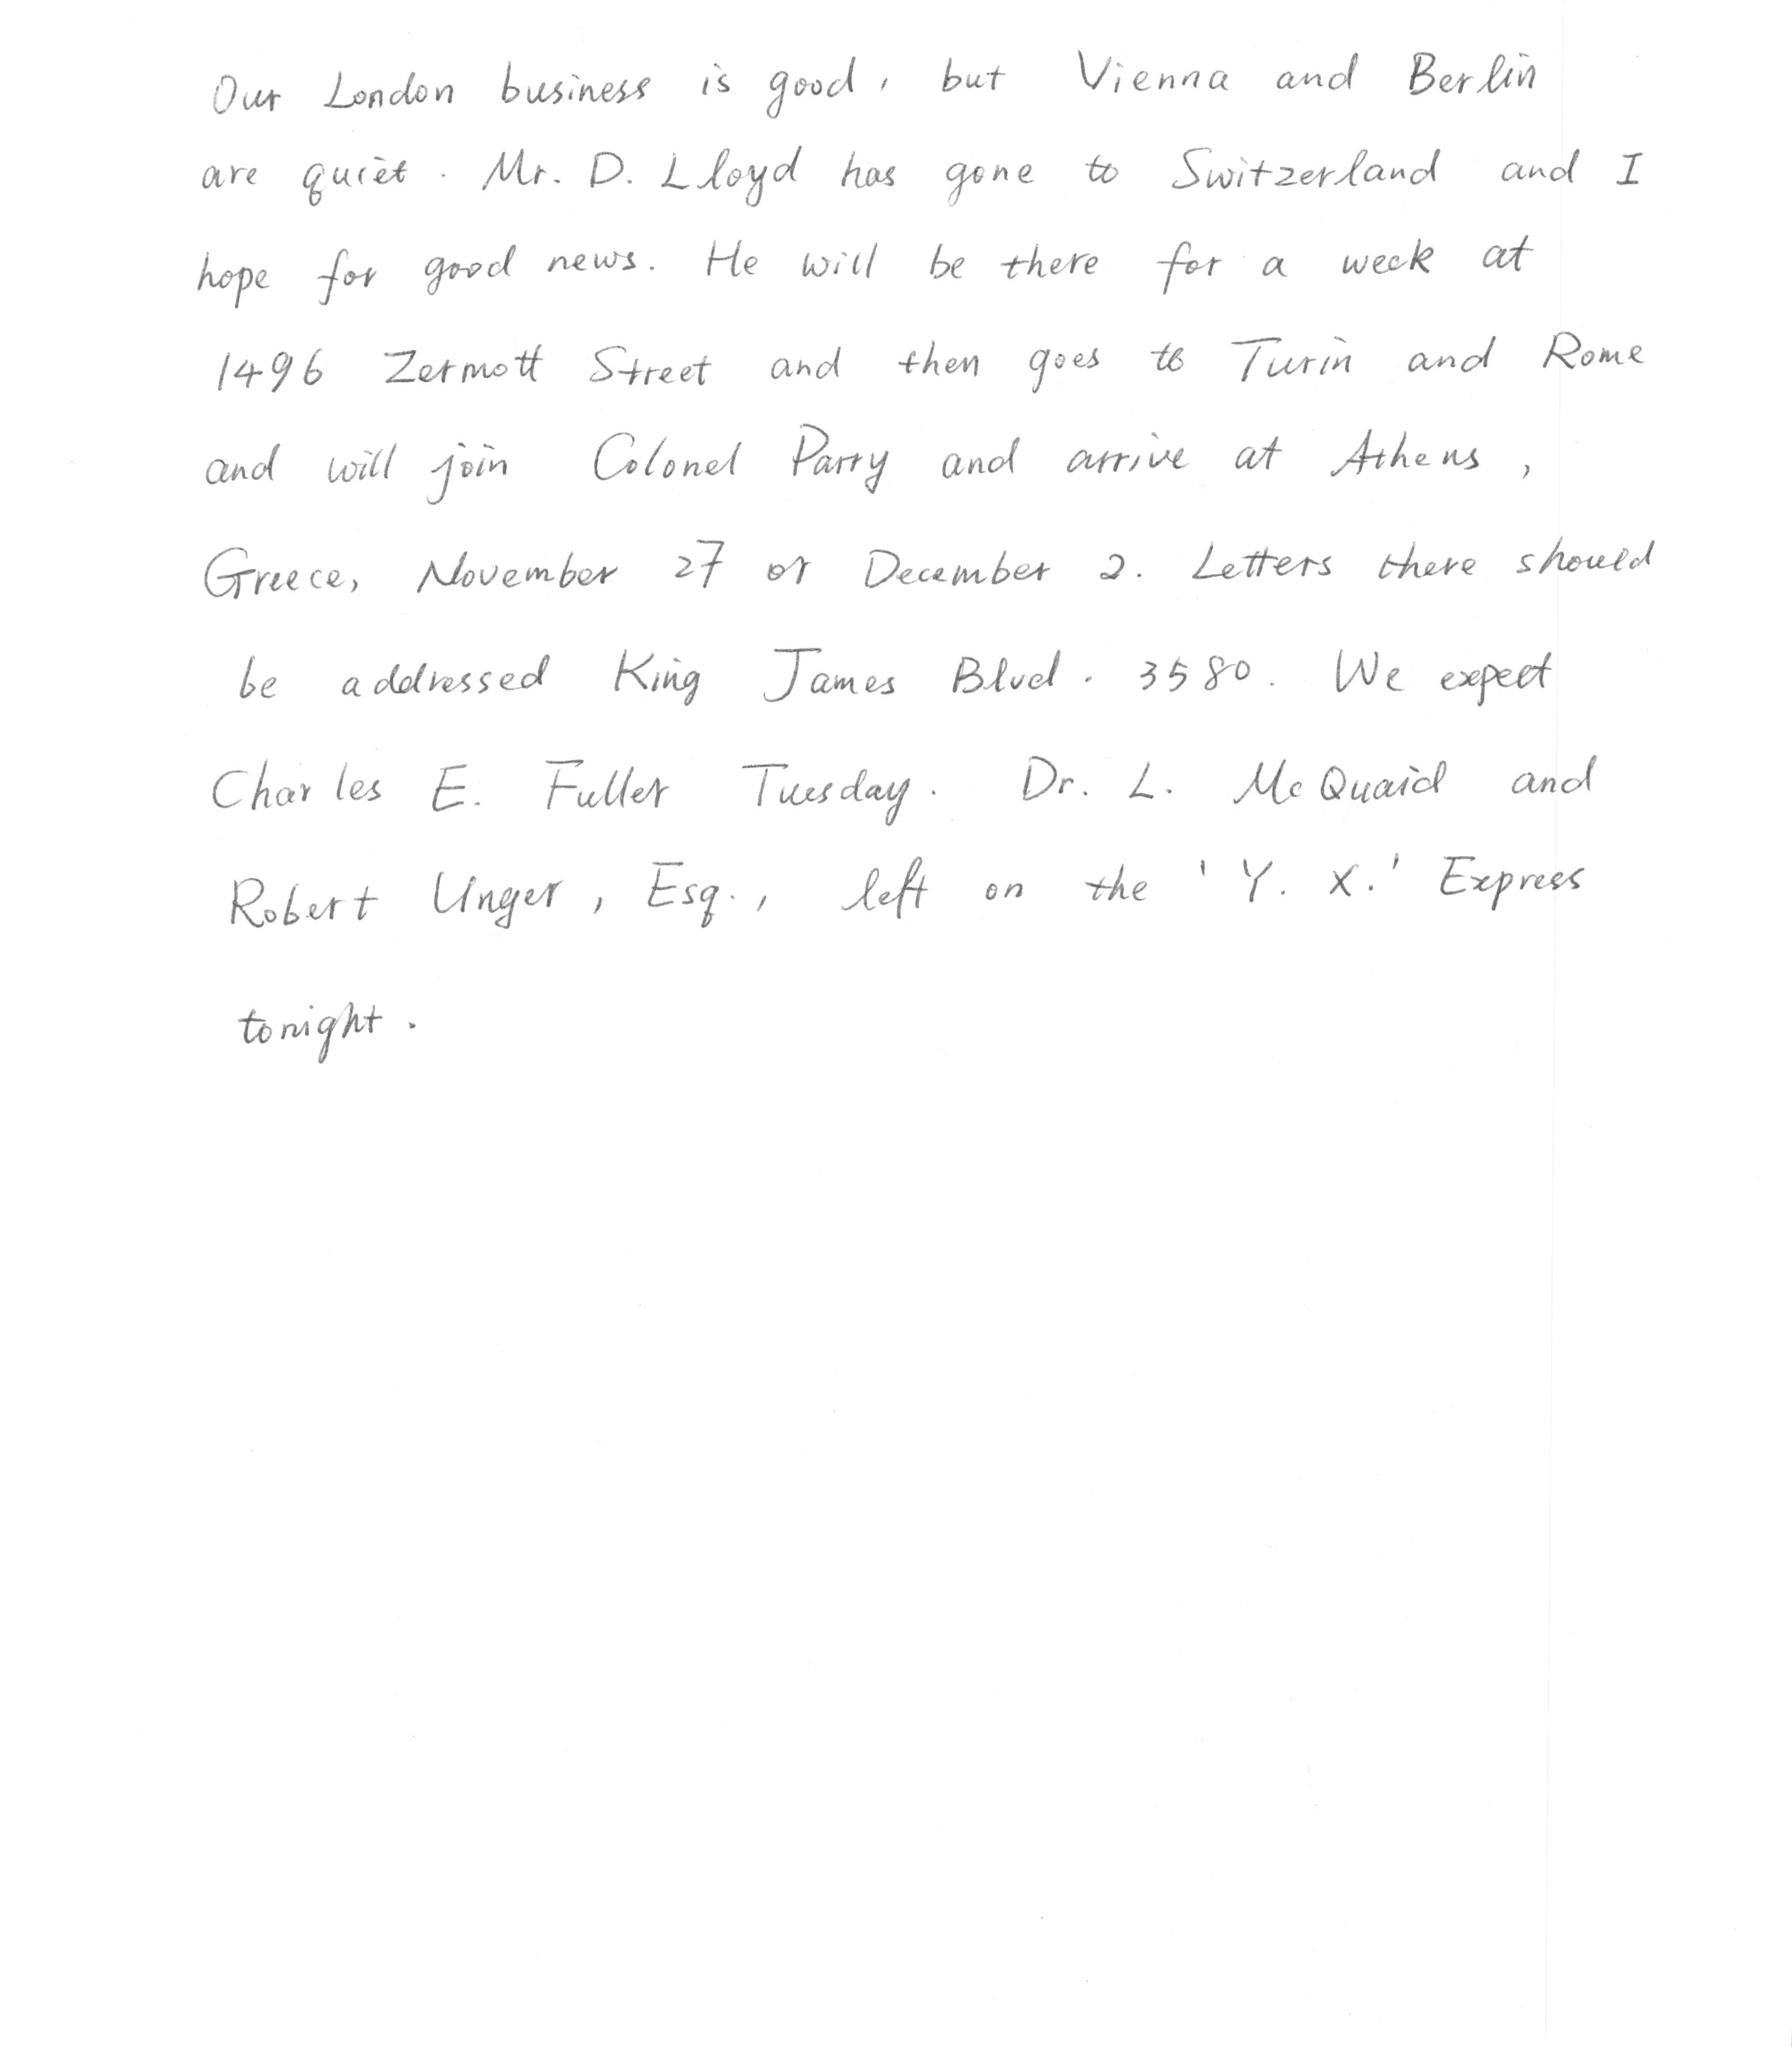 Our London business is good, but Vienna and Berlin
are quiet. Mr. D. Lloyd has gone to Switzerland and I
hope for good news. He will be there for a week at
1496 Zermott Street and then goes to Turin and Rome
and will join Colonel Parry and arrive at Athens,
Greece, November 27 or December 2. Letters there should
be addressed King James Blvd. 3580. We expect
Charles E. Fuller Tuesday. Dr. L. McQuaid and
Robert Unger, Esq., left on the 'Y. X.' Express
tonight.